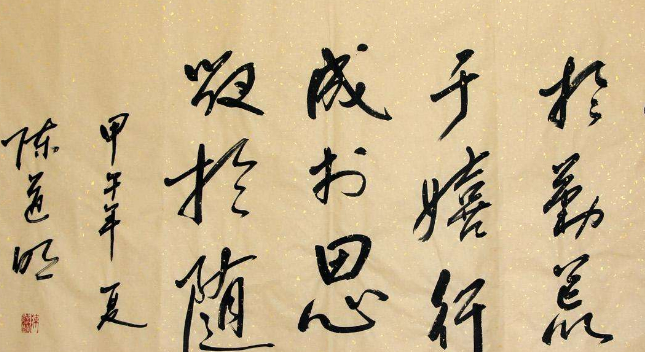 於勤荒
于嬉行
成於思
毁於随
甲午年 夏
陈道明